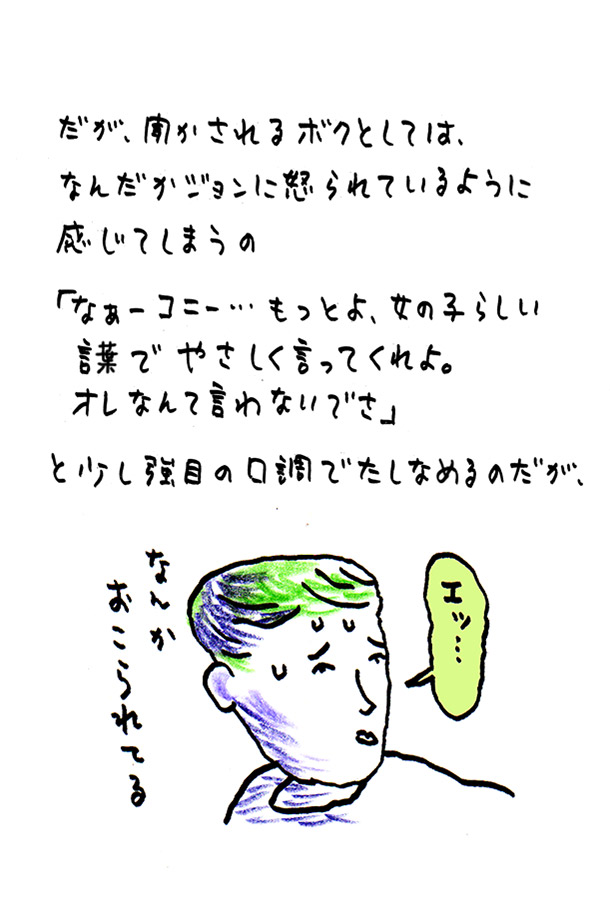 だが、聞かされるボクとしては、
なんだかジョンに怒られているように
感じてしまうの
「なぁーコニー…もっとよ、女の子らしい
言葉でやさしく言ってくれよ。
オレなんて言わないでさ」
と少し強目の口調でたしなめるのだが、
なんか
おこられてる
エッ…